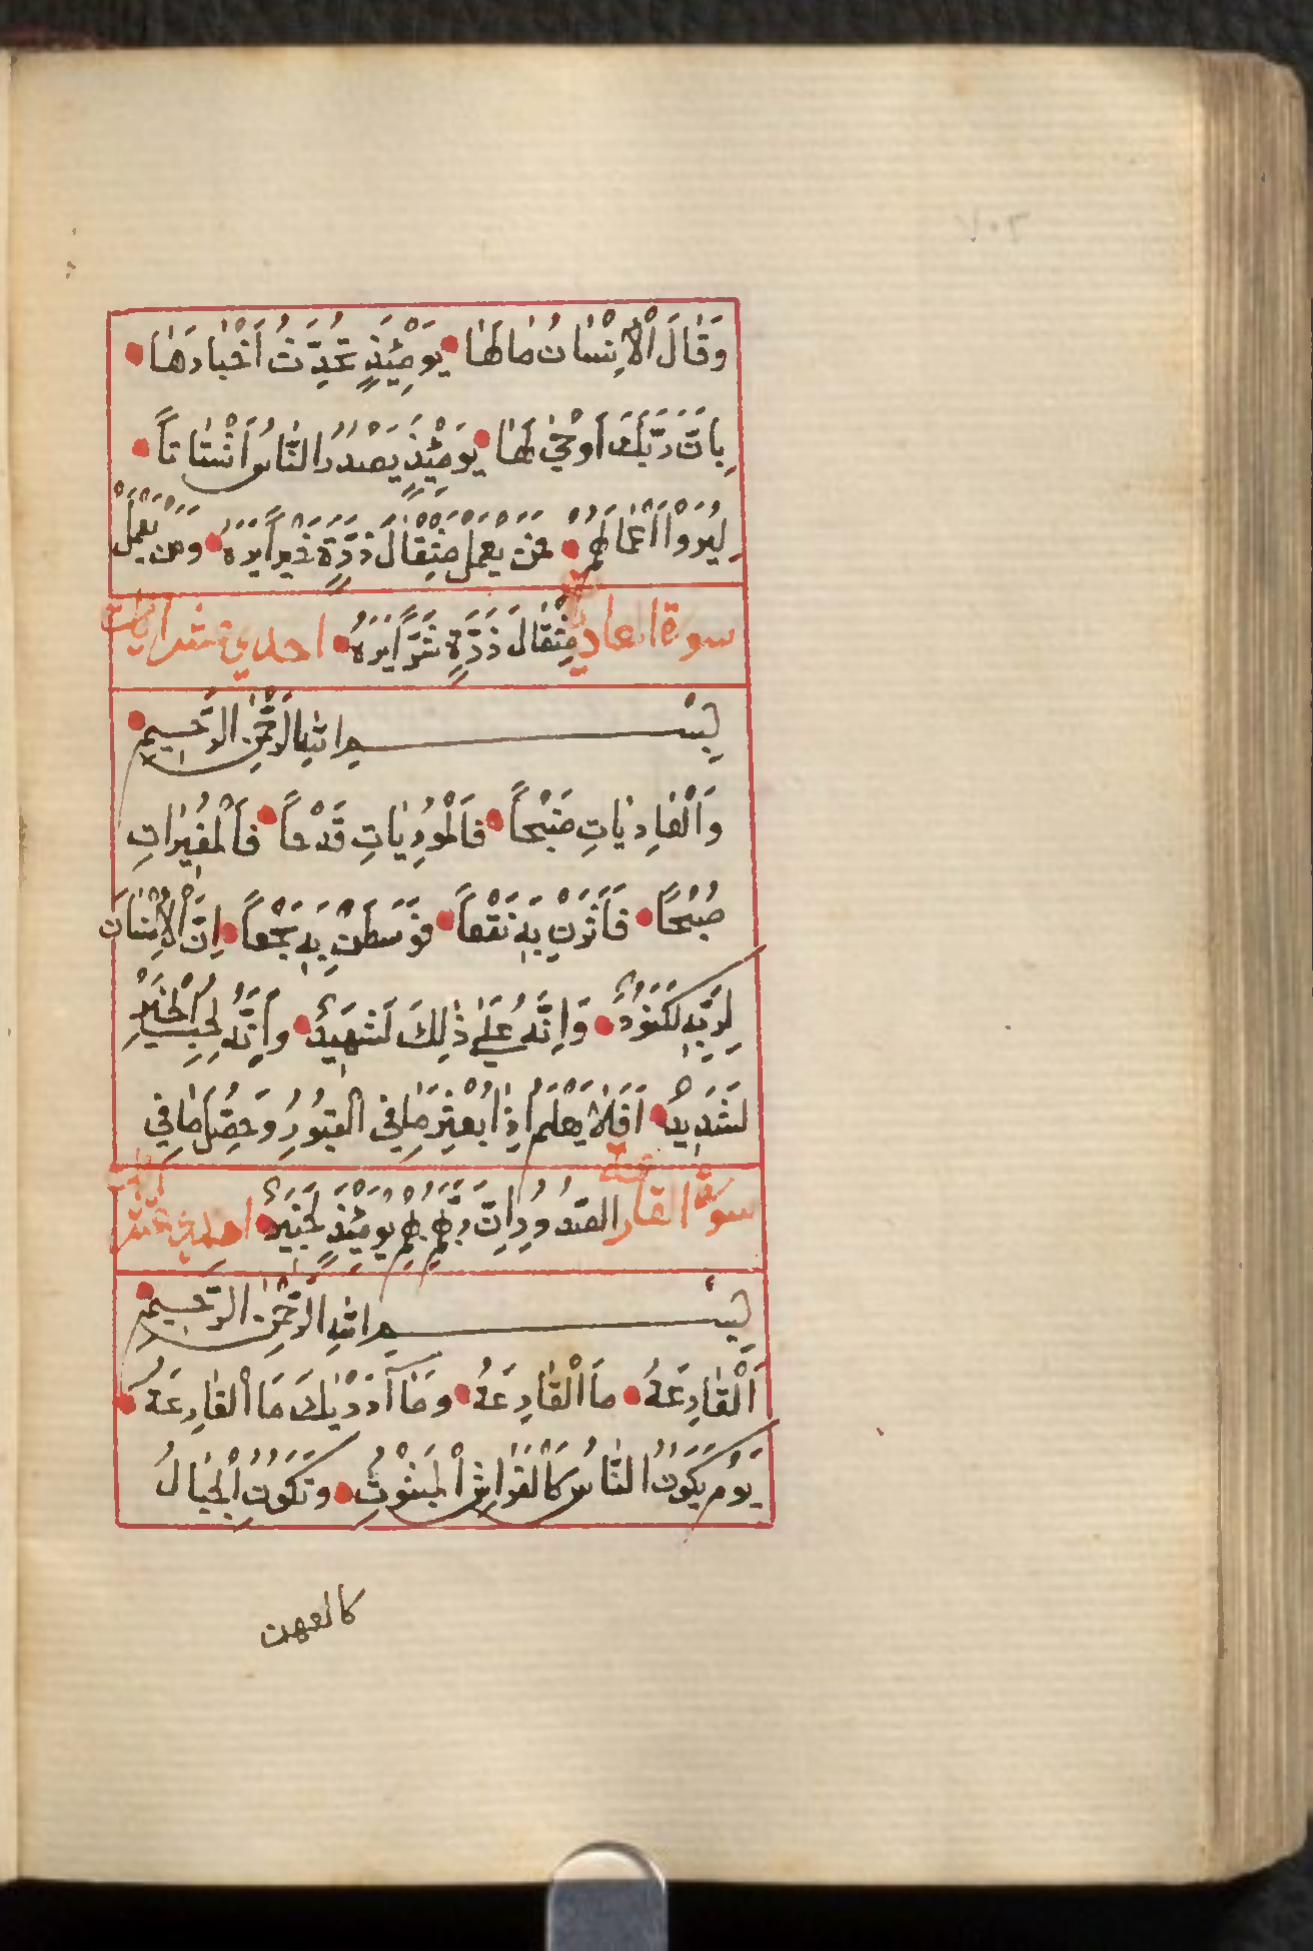 وَقَالَ الْاِنْسَانُ مَا لَهَا يَوْمَئِذٍ تُحَدِّثُ اَخْبَارَهَا
بِاَنَّ رَبَّكَ اَوْحٰى لَهَا يَوْمَئِذٍ يَصْدُرُ النَّاسُ اَشْتَاتاً
لِيُرَوْا اَعْمَالَهُمْ فَمَنْ يَعْمَلْ مِثْقَالَ ذَرَّةٍ خَيْراً يَرَهُ وَمَنْ يَعْمَلْ
سورة العاديات مِثْقَالَ ذَرَّةٍ شَرّاً يَرَهُ احدى عشر ايات
بِسْمِ اللّٰهِ الرَّحْمٰنِ الرَّحِيمِ
وَالْعَادِيَاتِ ضَبْحاً فَالْمُورِيَاتِ قَدْحاً فَالْمُغِيرَاتِ
صُبْحاً فَاَثَرْنَ بِهِ نَقْعاً فَوَسَطْنَ بِهِ جَمْعاً اِنَّ الْاِنْسَانَ
لِرَبِّهِ لَكَنُودٌ وَاِنَّهُ عَلٰى ذٰلِكَ لَشَهِيدٌ وَاِنَّهُ لِحُبِّ الْخَيْرِ
لَشَدِيدٌ اَفَلَا يَعْلَمُ اِذَا بُعْثِرَ مَا فِي الْقُبُورِ وَحُصِّلَ مَا فِي
سورة القارعة الصُّدُورِ اِنَّ رَبَّهُمْ بِهِمْ يَوْمَئِذٍ لَخَبِيرٌ احدى عشر ايات
بِسْمِ اللّٰهِ الرَّحْمٰنِ الرَّحِيمِ
اَلْقَارِعَةُ مَا الْقَارِعَةُ وَمَا اَدْرٰيكَ مَا الْقَارِعَةُ
يَوْمَ يَكُونُ النَّاسُ كَالْفَرَاشِ الْمَبْثُوثِ وَتَكُونُ الْجِبَالُ
كالعهن